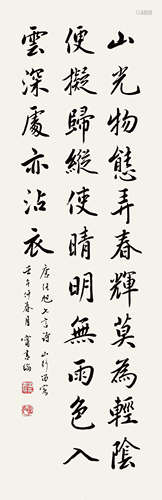 山光物態弄春輝莫為輕陰
便擬歸縱使晴明無雨色入
雲深處亦沾衣
唐張旭七言詩山行留客
壬午仲春月甯書綸